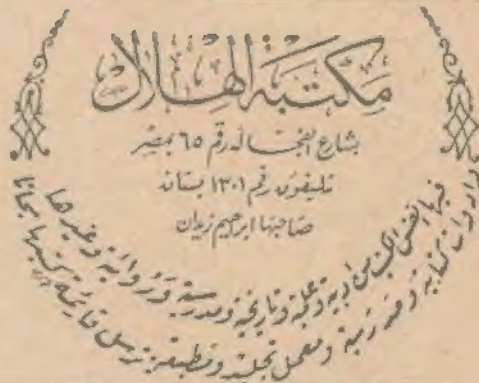 مكتبة الهلال
بشارع الفجاله رقم ٦٥ بمصر
تليفون رقم ١٣٠١ بستان
صاحبها ابراهيم زيدان
فيها انفس الكتب من ادبية وعلمية وتاريخية ومدرسية وروائية وغيرها
وادوات كتابية ومدرسية ومعمل تجليد ومطبعة. ترسل قائمة كتبها مجانا